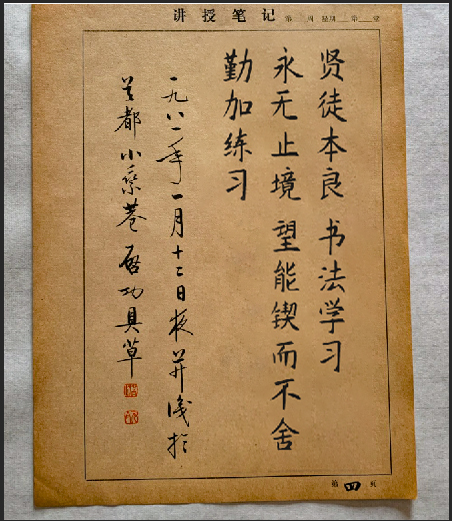 讲授笔记 第 周 星期 第 堂
贤徒本良 书法学习
永无止境 望能锲而不舍
勤加练习
一九八二年一月十二日夜并识于
首都小乘巷启功具草
第四页